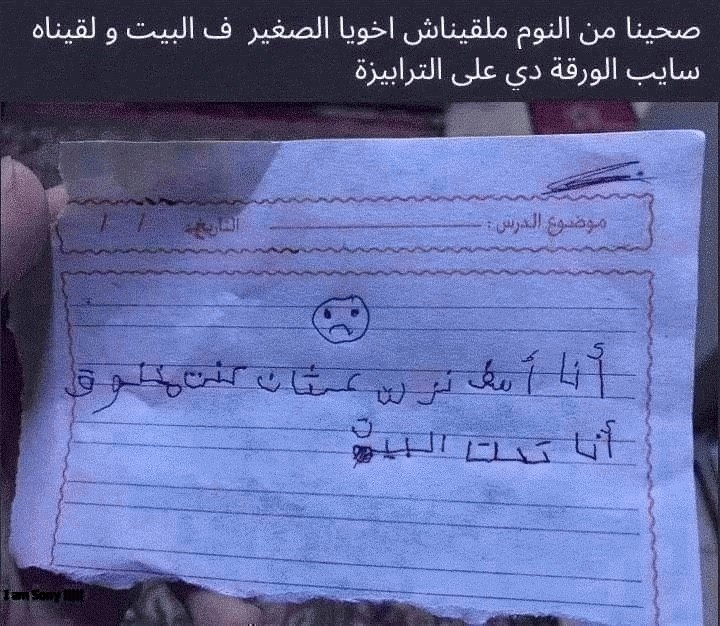 صحينا من النوم ملقيناش اخويا الصغير ف البيت و لقيناه
سايب الورقة دي على الترابيزة
موضوع الدرس : التاريخ / /
أنا أسف نزلت عشان كنت مخلوق
أنا تحت البيت
I am Sorry